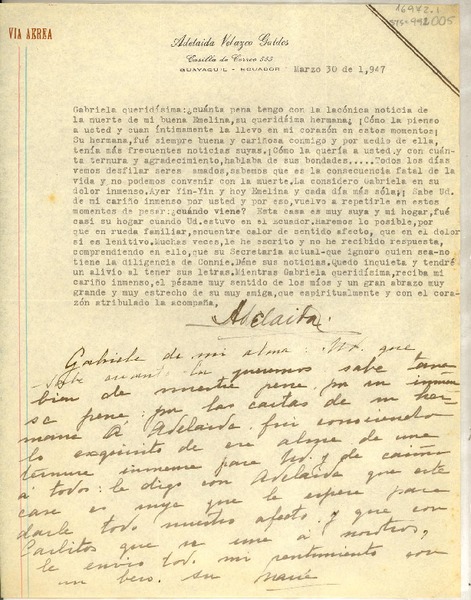 VIA AEREA
Adelaida Velazco Galdos
Casilla de Correo 583
GUAYAQUIL - ECUADOR
Marzo 30 de 1,947
Gabriela queridísima:¿cuánta pena tengo con la lacónica noticia de
la muerte de mi buena Emelina, su queridísima hermana; ¡Cómo la pienso
a usted y cuan íntimamente la llevo en mi corazón en estos momentos¡
Su hermana, fué siempre buena y cariñosa conmigo y por medio de ella,
tenía más frecuentes noticias suyas.¡Cómo la quería a usted.y con cuán-
ta ternura y agradecimiento, hablaba de sus bondades.....Todos los días
vemos desfilar seres amados, sabemos que es la consecuencia fatal de la
vida y no podemos convenir con la muerte.La considero Gabriela en su
dolor inmenso.Ayer Yin-Yin y hoy Emelina y cada día más sóla¡;¡ Sabe Ud.
de mi cariño inmenso por usted y por eso, vuelvo a repetirle en estos
momentos de pesar:¿cuándo viene? Esta casa es muy suya y mi hogar, fué
casi su hogar cuando Ud.estuvo en el Ecuador.Haremos lo posible, por
que en rueda familiar, encuentre calor de sentido afecto, que en el dolor
si es lenitivo.Muchas veces, le he escrito y no he recibido respuesta,
comprendiendo en ello, que su Secretaria actual-que ignoro quien sea-no
tiene la diligencia de Connie.Dénos sus noticias.Quedo inquieta y tendré
un alivio al tener sus letras.Mientras Gabriela queridísima, reciba mi
cariño inmenso, el pésame muy sentido de los míos y un gran abrazo muy
grande y muy estrecho de su muy amiga, que espiritualmente y con el cora-
zón atribulado la acompaña,
Adelaida.
Gabriela de mi alma: Ud. que
sabe cuanto la queremos sabe tam
bien de nuestra pena, por su inmen
sa pena: por las cartas de su her
mana a Adelaida fui conociendo
lo exquisito de ese alma de una
ternura inmensa para Ud. y de cariño
a todos: le digo con Adelaida que esta
casa es suya que la espera para
darle todo nuestro afecto y que con
Carlitos que se une a nosotros,
le envio todo mi sentimiento con
un beso. su María